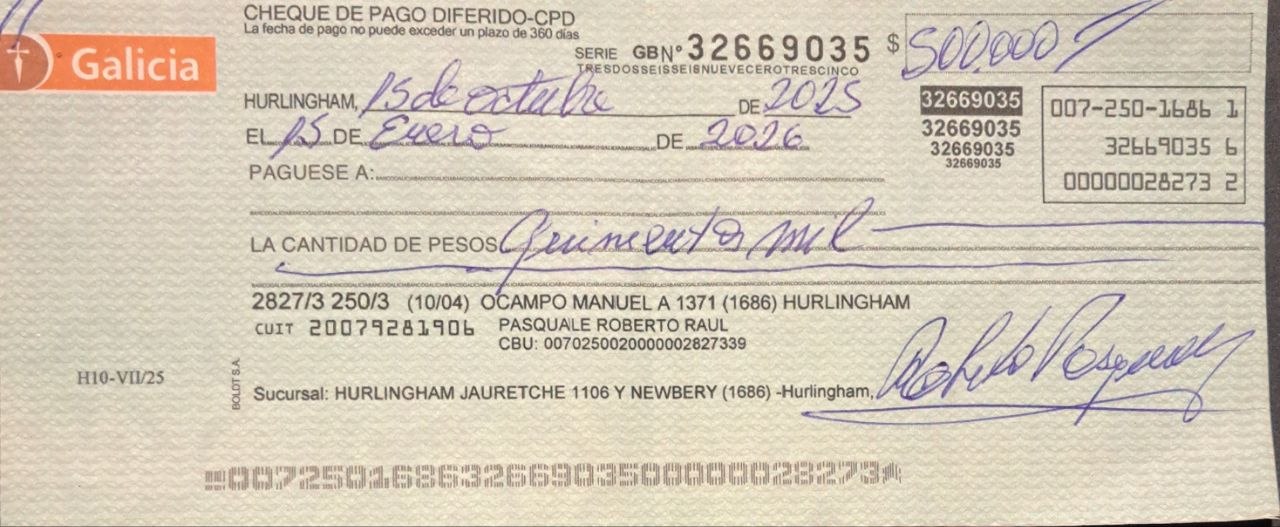 CHEQUE DE PAGO DIFERIDO-CPD
La fecha de pago no puede exceder un plazo de 360 días
Galicia
SERIE GB Nº 32669035 $ 500.000
TRESDOSSEISSEISNUEVECEROTRESCINCO
HURLINGHAM, 15 de octubre DE 2025
EL 15 DE Enero DE 2026
PAGUESE A:
32669035
32669035
32669035
32669035
007-250-1686 1
32669035 6
00000028273 2
LA CANTIDAD DE PESOS Quinientos mil
2827/3 250/3 (10/04) OCAMPO MANUEL A 1371 (1686) HURLINGHAM
CUIT 20079281906 PASQUALE ROBERTO RAUL
CBU: 0070250020000002827339
H10-VII/25
BOLDT S.A.
Sucursal: HURLINGHAM JAURETCHE 1106 Y NEWBERY (1686) -Hurlingham,
Roberto Pasquale
00725016863266903500000028273